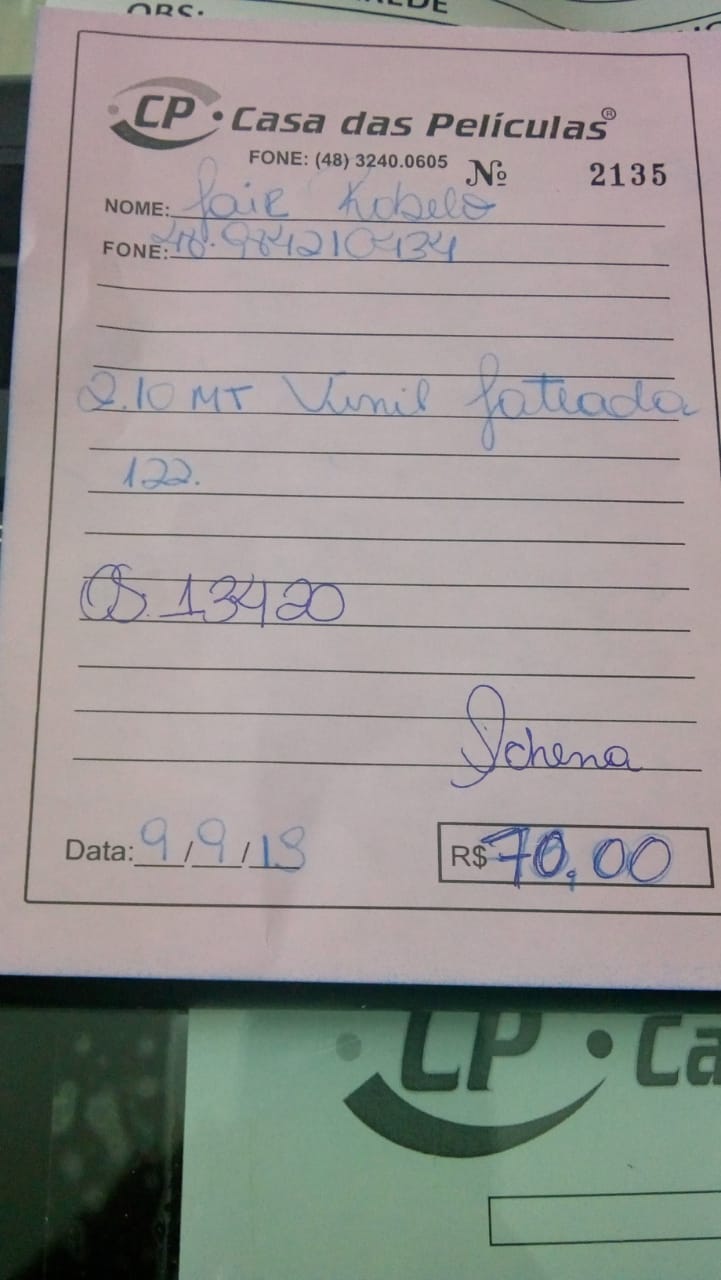 OBS:
CP • Casa das Películas®
FONE: (48) 3240.0605 Nº 2135
NOME: Jair
FONE: 48.984210434
2.10 MT Vinil Jateada
122.
OS. 13420
Schena
Data: 9/9/19 R$ 70,00
CP • Ca